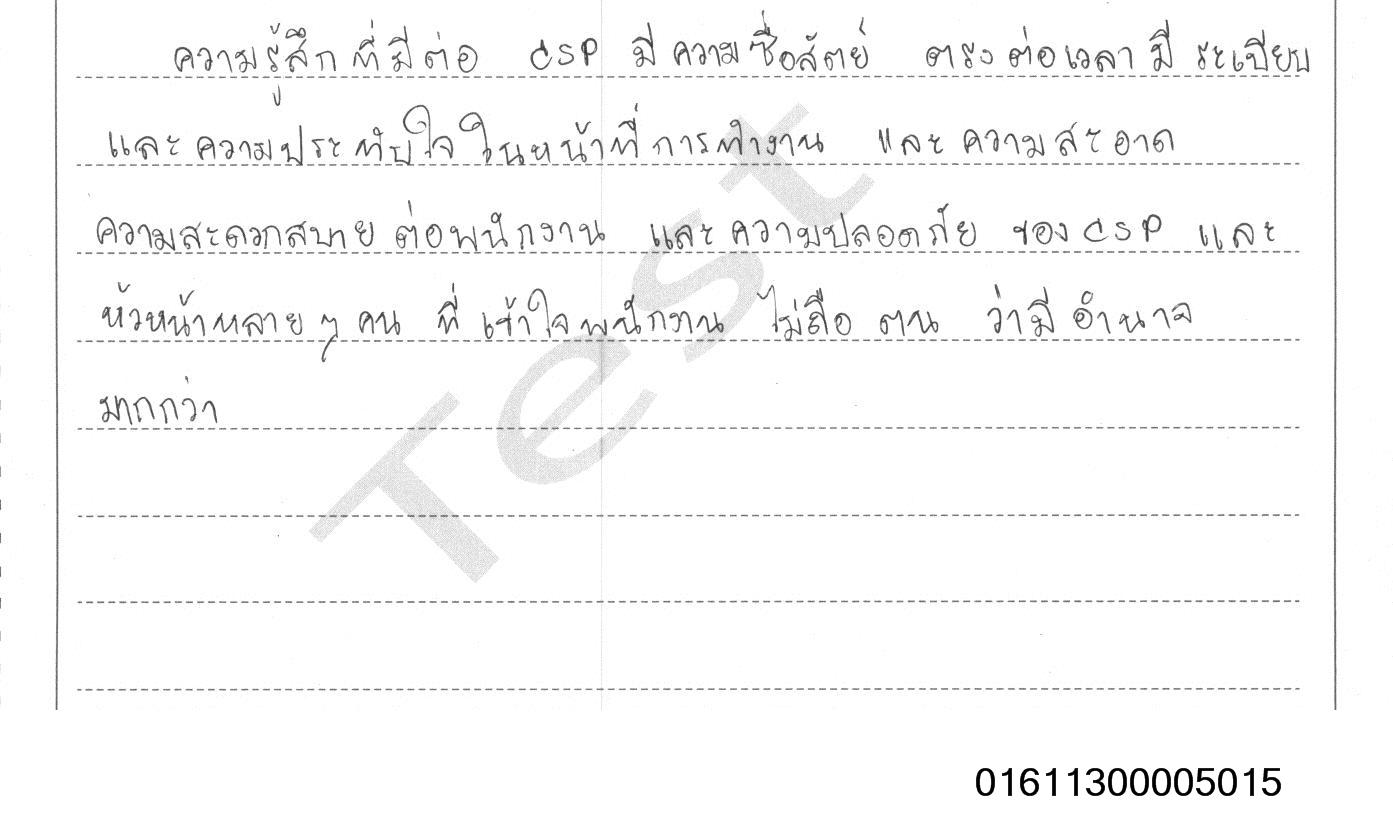 ความรู้สึกที่มีต่อ CSP มีความซื่อสัตย์ ตรงต่อเวลามีระเบียบ
และความประทับใจในหน้าที่การทำงาน และความสะอาด
ความสะดวกสบายต่อพนักงาน และความปลอดภัย ของ CSP และ
หัวหน้าหลายๆคน ที่เข้าใจพนักงาน ไม่ถือตน ว่ามีอำนาจ
มากกว่า
Test
01611300005015